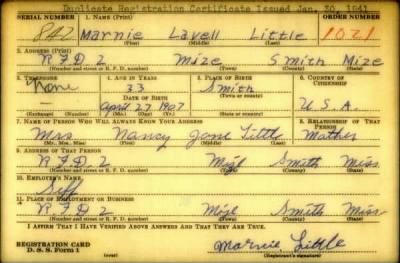 Duplicate Registration Certificate Issued Jan. 30, 1941
SERIAL NUMBER 1. NAME (Print) ORDER NUMBER
842 Marnie Lavell Little 1021
(First) (Middle) (Last)
2. ADDRESS (Print)
R F D 2 Mize Smith Mize
(Number and street or R. F. D. number) (Town) (County) (State)
3. TELEPHONE 4. AGE IN YEARS 5. PLACE OF BIRTH 6. COUNTRY OF CITIZENSHIP
None 33 Smith
DATE OF BIRTH (Town or county)
April 27 1907 U.S.A.
(Exchange) (Number) (Mo.) (Day) (Yr.) (State or country)
7. NAME OF PERSON WHO WILL ALWAYS KNOW YOUR ADDRESS 8. RELATIONSHIP OF THAT PERSON
Mrs Nancy Jane Little Mother
(Mr., Mrs., Miss) (First) (Middle) (Last)
9. ADDRESS OF THAT PERSON
R F D 2 Mize Smith Miss
(Number and street or R. F. D. number) (Town) (County) (State)
10. EMPLOYER'S NAME
Self
11. PLACE OF EMPLOYMENT OR BUSINESS
R F D 2 Mize Smith Miss
(Number and street or R. F. D. number) (Town) (County) (State)
I AFFIRM THAT I HAVE VERIFIED ABOVE ANSWERS AND THAT THEY ARE TRUE.
REGISTRATION CARD
D. S. S. Form 1 (over) Marnie Little
(Registrant's signature)